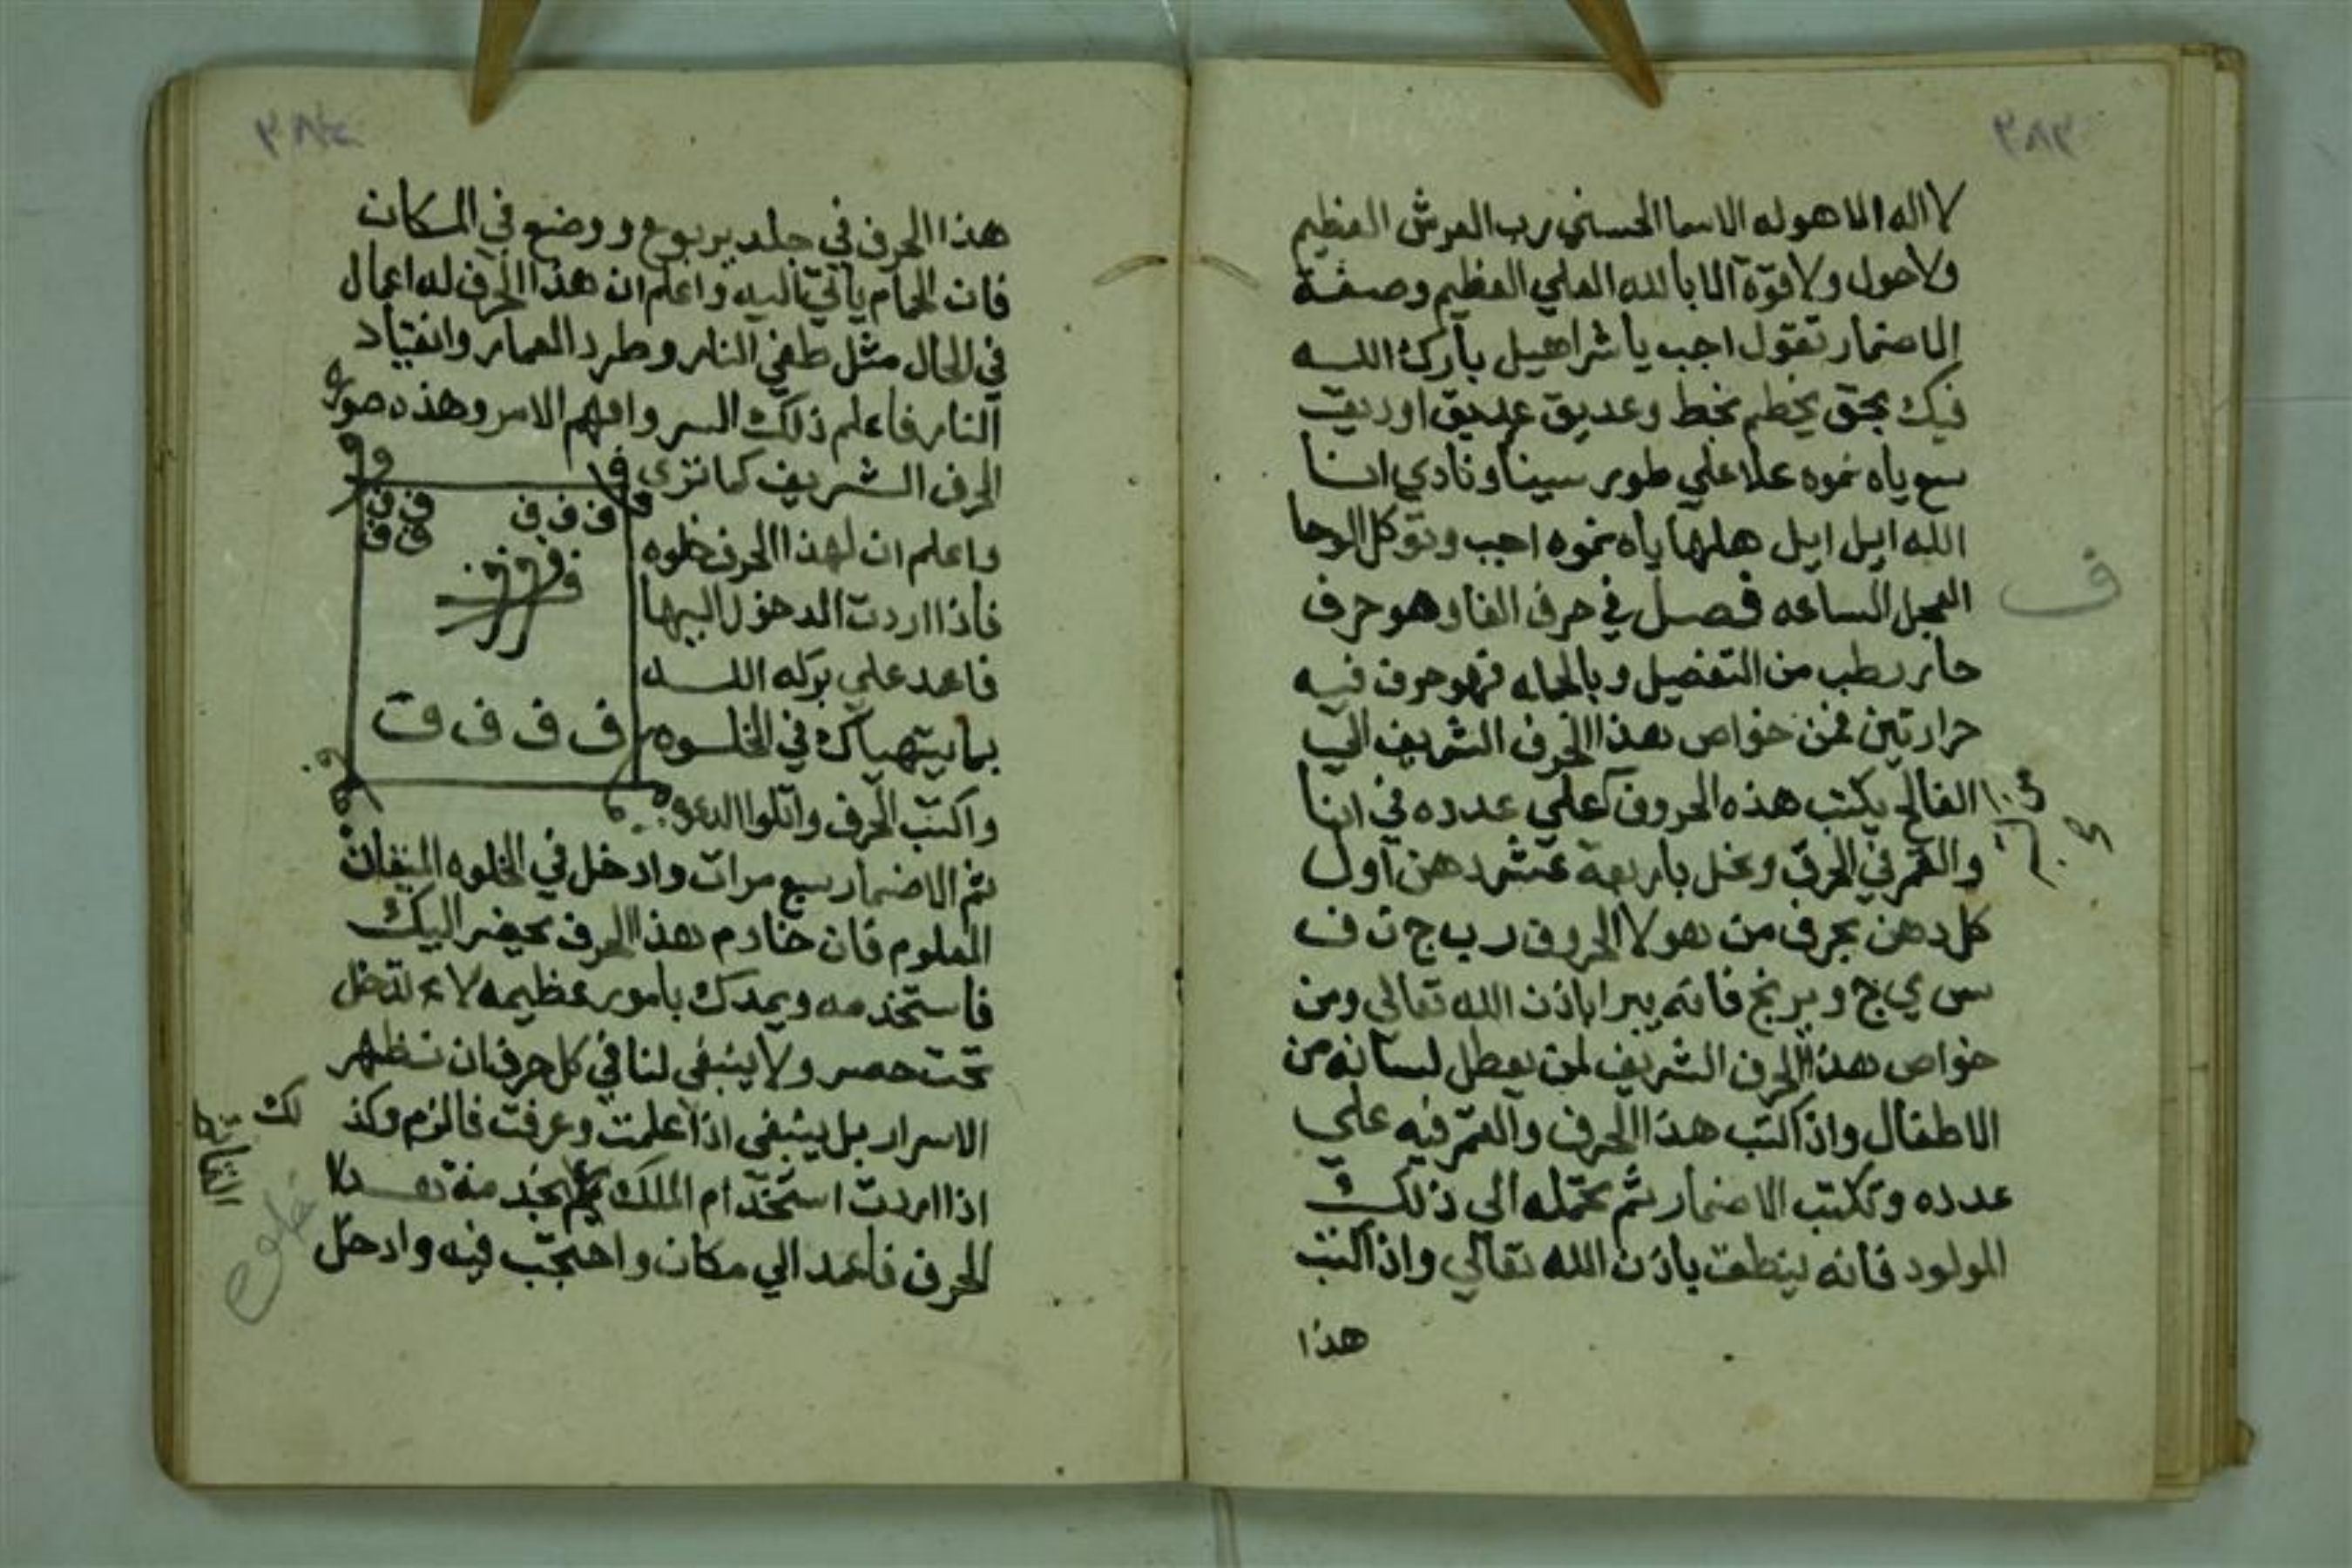 ٣٨٣
لا اله الا هو له الاسما الحسني رب العرش العظيم
ولا حول ولا قوة الا بالله العلي العظيم وصفة
الاضمار تقول اجب يا شراهيل بارك الله
فيك بحق
علا علي طور سينا ونادي انا
الله ايل ايل ياه نموه اجب وتوكل الوحا
العجل الساعه فصل في حرف الفا وهو حرف
ف
حار رطب من التفضيل وبالجمله فهو حرف فيه
حرارتين فمن خواص هذا الحرف الشريف الي
الفالج يكتب هذه الحروف علي عدده في انا
والقمر في الحرف باربعة عشر دهن اول
كل دهن بحرف من هولا الحروف ر ب ج ت ف
س ي ج و فانه يبرا باذن الله تعالي ومن
خواص هذا الحرف الشريف لمن يعطل لسانه من
الاطفال واذا كتب هذا الحرف والقمر فيه علي
عدده وتكتب الاضمار ثم تحمله الي ذلك
المولود فانه ينطق باذن الله تعالي واذا كتب
هذا
٣٨٤
هذا الحرف في جلد يربوع ووضع في المكان
فان الحمام ياتي اليه واعلم ان هذا الحرف له اعمال
في الحال مثل طفي النار وطرد العمار وانقياد
النار فاعلم ذلك السر وافهم الامر وهذه صورة
الحرف الشريف كما تري
واعلم ان لهذا الحرف خلوه
فاذا اردت الدخول اليها
فاعمد علي بركه الله
بما يتهياك في الخلوه
واكتب الحرف واتلوا الدعوه
ف ف ف ف ف
ف ف
ف ف ف ف
ثم الاضمار سبع مرات وادخل في الخلوه
المعلوم فان خادم هذا الحرف يحضر اليك
فاستخدمه ويمدك بامور عظيمه لا تدخل
تحت حصر ولا ينبغي لنا في كل حرف ان نظهر
لك
الاسرار بل ينبغي اذا علمت وعرفت فالزم وكذ
اذا اردت استخدام الملك
الحرف فاعمد الي مكان واحتجب فيه وادخل